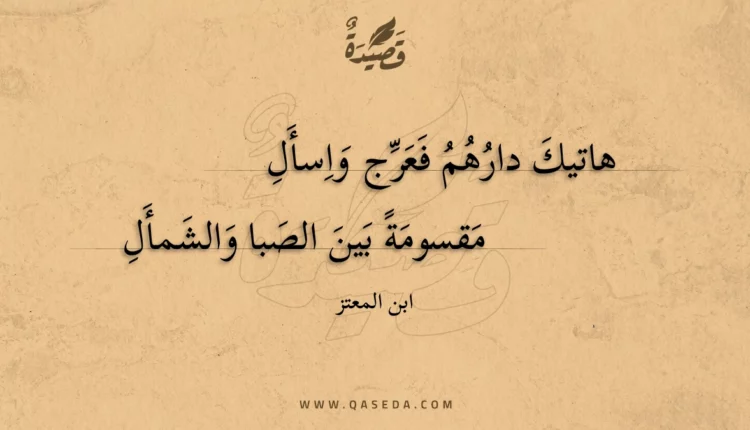 قَصِيدَةٌ
هاتيكَ دارُهُمُ فَعَرِّج وَاِسأَلِ
مَقسومَةً بَينَ الصَبا وَالشَمأَلِ
ابن المعتز
WWW.QASEDA.COM